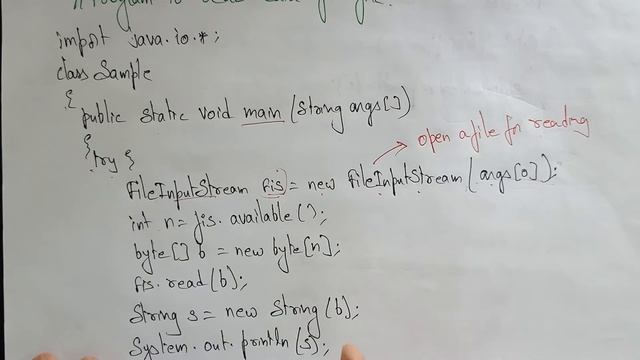 Program to read data from file.
import java.io.*;
class Sample
{ public static void main (String args[])
{ try {
open a file for reading
FileInputStream fis = new FileInputStream (args[0]);
int n = fis.available ();
byte[] b = new byte[n];
fis.read (b);
String s = new String (b);
System.out.println (s);